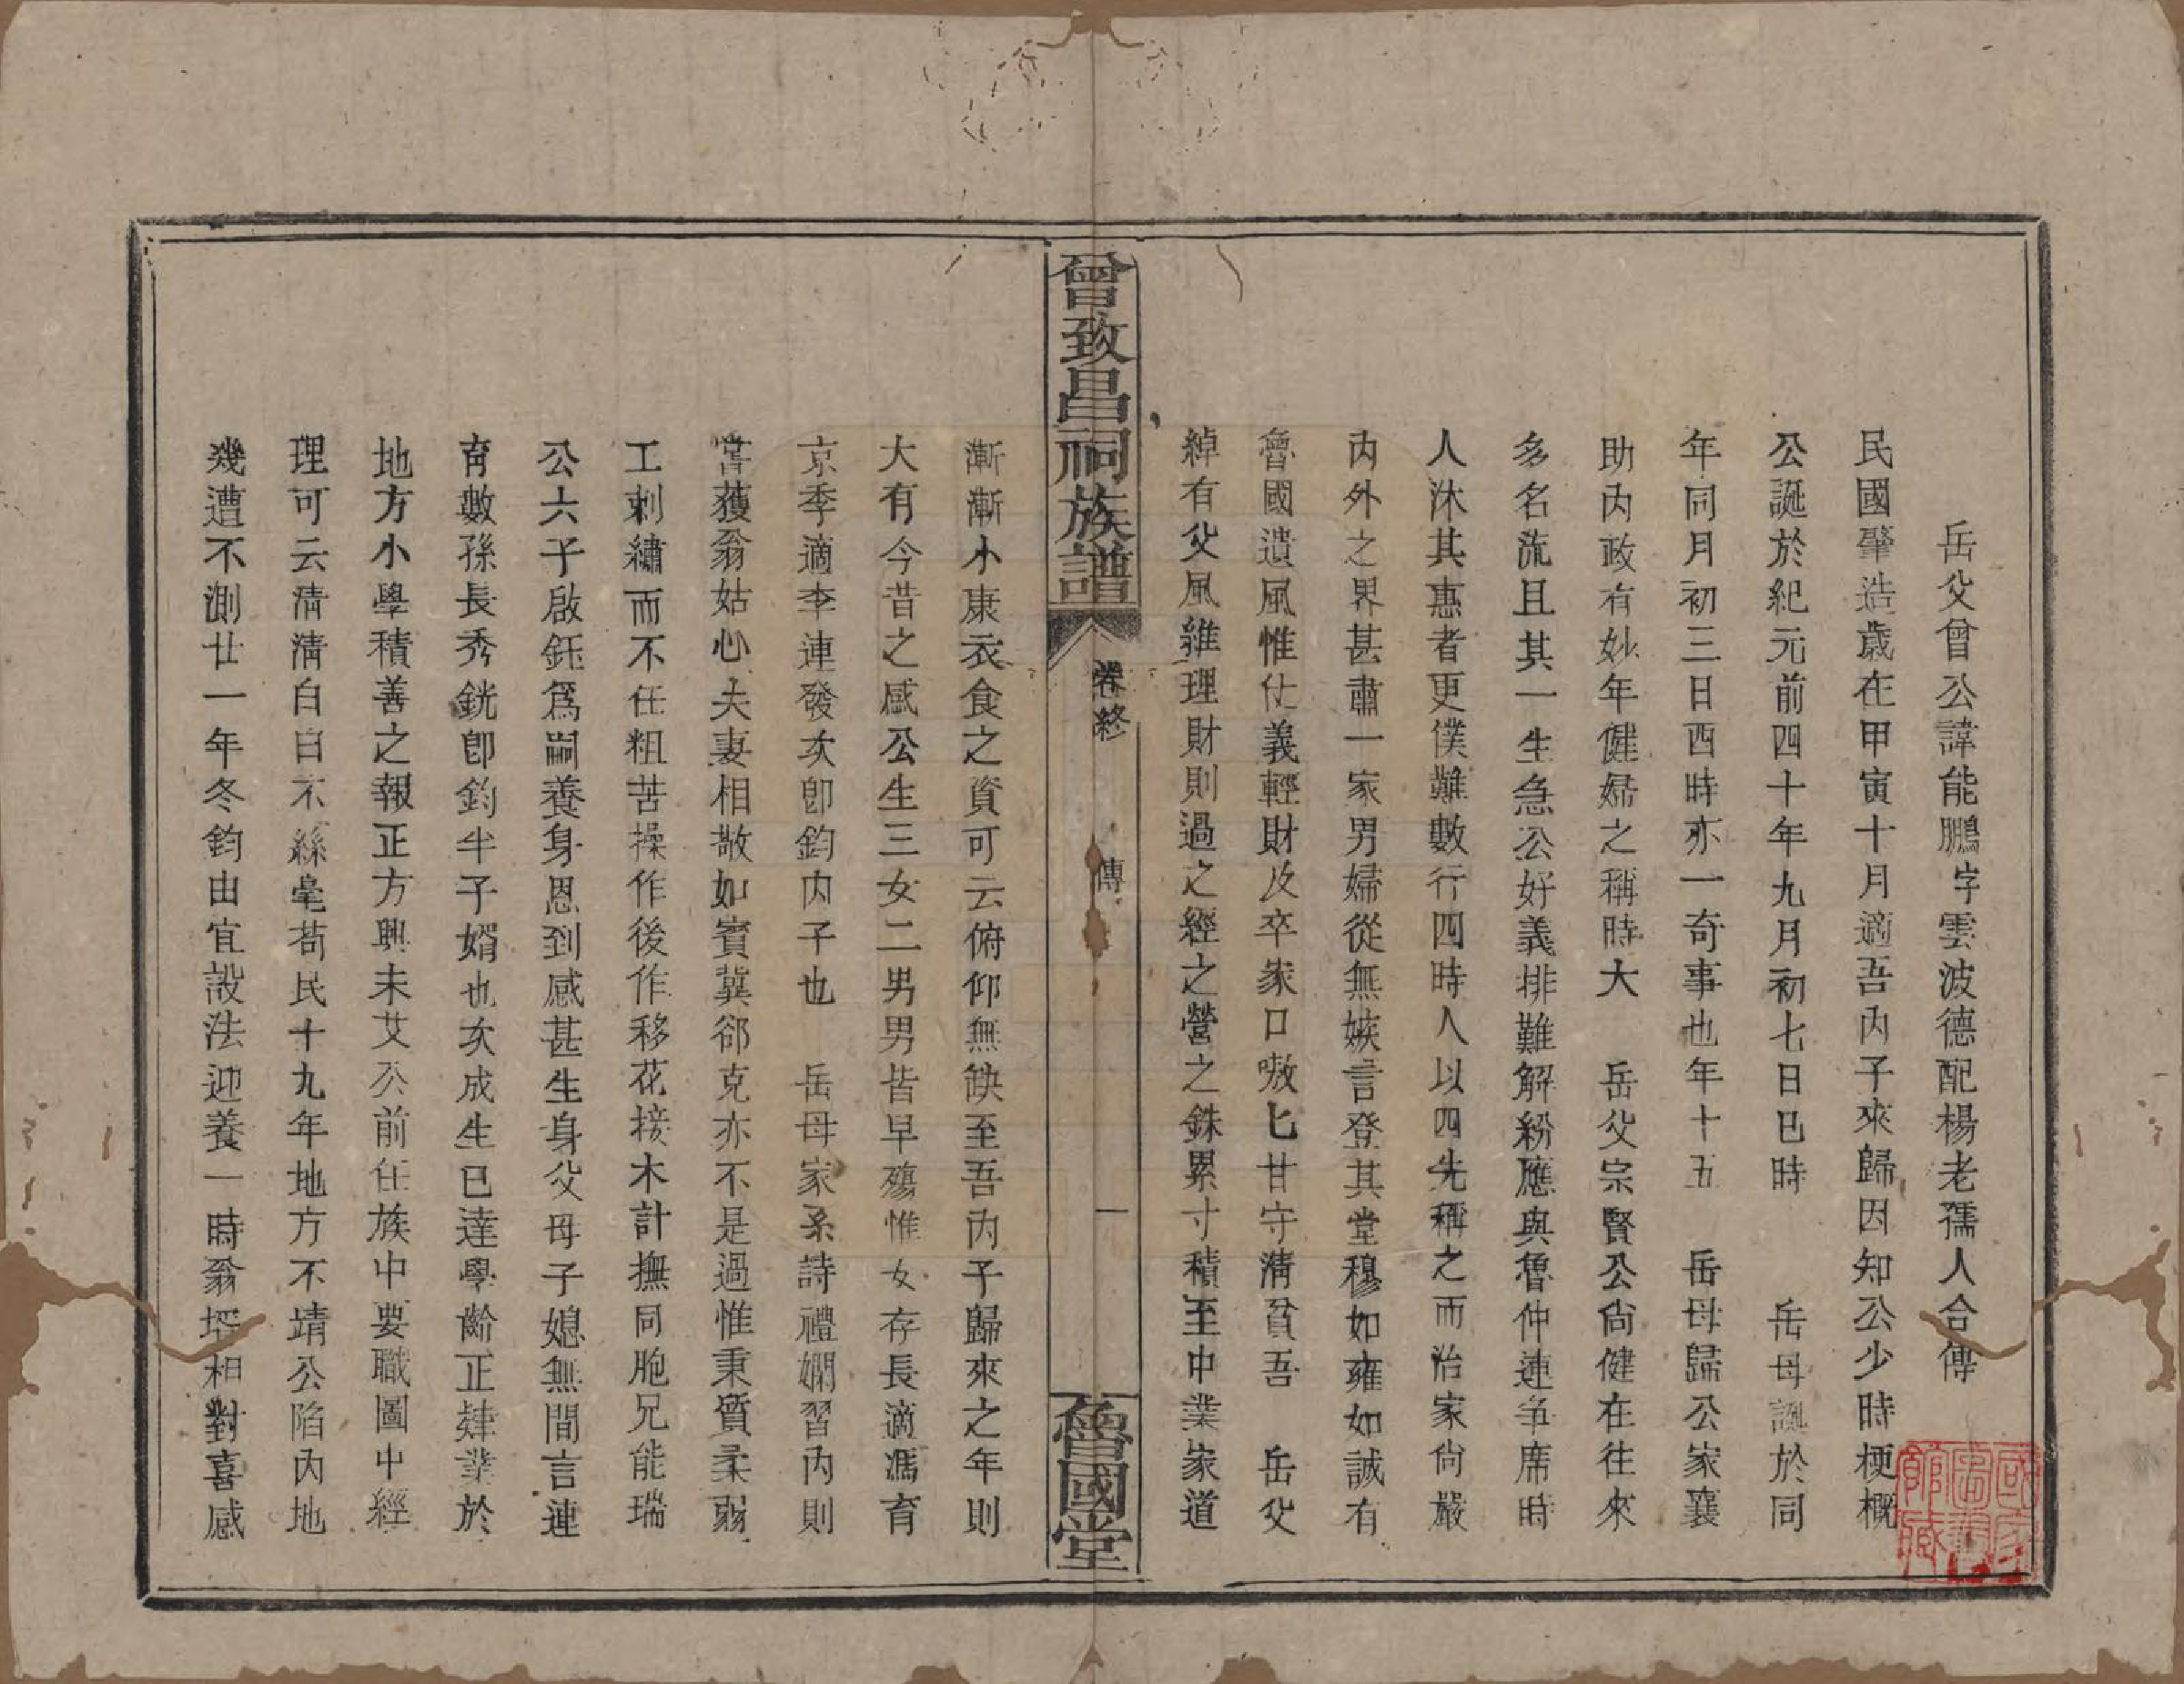 岳父曾公諱能鵬字雲波德配楊老孺人合傳
民國肇造歲在甲寅十月適吾内子來歸因知公少時梗概
公誕於紀元前四十年九月初七日巳時　岳母誕於同
年同月初三日酉時亦一奇事也年十五　岳母歸公家襄
助内政有妙年健婦之稱時大　岳父宗賢公尙健在往來
多名流且其一生急公好義排難解紛應與魯仲連争席時
人沐其惠者更僕難數行四時人以四先稱之而治家尙嚴
内外之界甚肅一家男婦從無嫉言登其堂穆如雍如誠有
魯國遺風惟仗義輕財及卒家口嗷匕甘守清貧吾　岳父
綽有父風維理財則過之經之營之銖累寸積至中業家道
曾致昌祠族譜
卷終
傳
一
魯國堂
漸漸小康衣食之資可云俯仰無缺至吾内子歸來之年則
大有今昔之感公生三女二男男皆早殤惟女存長適馮育
京季適李連發次卽鈞内子也　岳母家系詩禮嫻習内則
嘗獲翁姑心夫妻相敬如賓冀郤克亦不是過惟秉質柔弱
工刺繡而不任粗苦操作後作移花接木計撫同胞兄能瑞
公六子啟鈺爲嗣養身恩到感甚生身父母子媳無間言連
育數孫長秀銧卽鈞半子婿也次成生已達學齡正肄業於
地方小學積善之報正方興未艾公前任族中要職圖中經
理可云清清白白不絲毫苟民十九年地方不靖公陷内地
幾遭不測廿一年冬鈞由宜設法迎養一時翁壻相對喜感